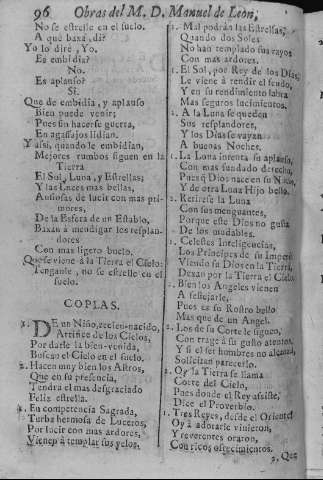 96 Obras del M. D. Manuel de Leon,
No se estrelle en el suelo.
A què baxa, di?
Yo lo dirè, Yo.
Es embidia?
No.
Es aplauso?
Si.
Que de embidia, y aplauso
Bien puede venir;
Pues sin hacerse guerra,
En agassajos lidian.
Y assi, quando le embidian,
Mejores rumbos siguen en la
Tierra
El Sol, Luna, y Estrellas;
Y las Luces mas bellas,
Ansiosas de lucir con mas primores,
De la Esfera de un Establo,
Baxan à mendigar les resplandores
Con mas ligero buelo.
Que se viene à la Tierra el Cielo:
Tenganle, no se estrelle en el
suelo.
COPLAS.
1. DE un Niño, recien-nacido,
Artifice de los Cielos,
Por darle la bien-venida,
Buscao el Cielo en el suelo.
2. Hacen muy bien los Astros,
Que en su presencia,
Tendrà el mas desgraciado
Feliz estrella.
1. En competencia Sagrada,
Turba hermosa de Luceros,
Por lucir con mas ardores,
Vienen à templar sus yelos.
2. Mal podràn las Estrellas,
Quando dos Soles
No han templado sus rayos
Con mas ardores.
1. El Sol, por Rey de los Dias,
Le viene à rendir el feudo,
Y en su rendimiento labra
Mas seguros lucimientos.
2. A la Luna se queden
Sus resplandores,
Y los Dias se vayan
A buenas Noches.
1. La Luna intenta su aplauso,
Con mas fundado derecho,
Pues q̃ Dios nace en su
Y de otra Luna Hijo bello.
2. Retirese la Luna
Con sus menguantes,
Porque este Dios no gusta
De los mudables.
1. Celestes Inteligencias,
Los Principes de su Imperio
Viendo su Dios en la Tierra,
Dexan por la Tierra el Cielo.
2. Bien los Angeles vienen
A festejarle,
Pues es su Rostro bello
Mas que de un Angel.
1. Los de su Corte le siguen,
Con trage à su gusto atentos,
Y si el ser hombres no alcanzan,
Solicitan parecerlo.
2. Oy la Tierra se llama
Corte del Cielo,
Pues donde el Rey assiste,
Dice el Proverbio.
1. Tres Reyes, desde el Oriente
Oy à adorarle vinieron,
Y reverentes oraron,
Con ricos ofrecimientos.
2. Que